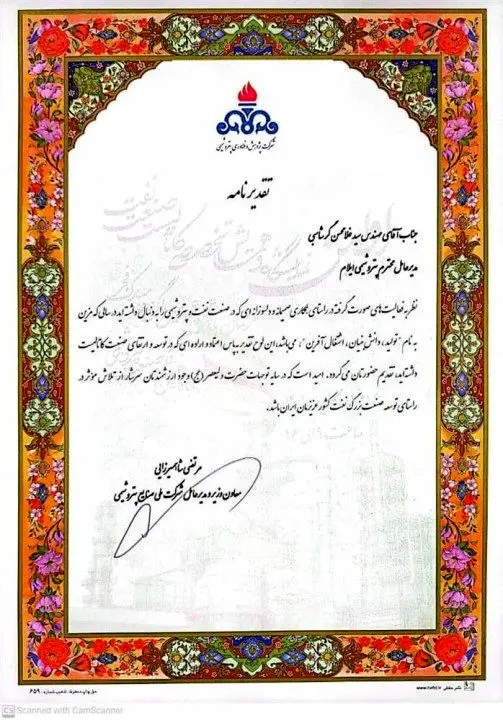 شرکت پژوهش و فناوری پتروشیمی
تقدیرنامه
جناب آقای مهندس سید غلامحسن گرشاسبی
مدیرعامل محترم پتروشیمی ایلام
نظر به فعالیت های صورت گرفته در راستای همکاری صمیمانه و دلسوزانه ای که در صنعت نفت و پتروشیمی را به دنبال داشته اید، در سالی که مزین
به نام "تولید، دانش بنیان، اشتغال آفرین"، می باشد، این لوح تقدیر بپاس اعتقاد و اراده ای که در توسعه و ارتقای صنعت کاتالیست
داشته اید، تقدیم حضورتان می گردد. امید است که در سایه توجهات حضرت ولیعصر (عج) وجود ارزشمندتان سرشار از تلاش مؤثر در
راستای توسعه صنعت بزرگ نفت کشور عزیزمان ایران باشد.
مرتضی شاهمیرزایی
معاون وزیر و مدیرعامل شرکت ملی صنایع پتروشیمی
حق چاپ محفوظ، تذهیب شماره: ۶۵۹
www.hafst.ir
CS Scanned with CamScanner